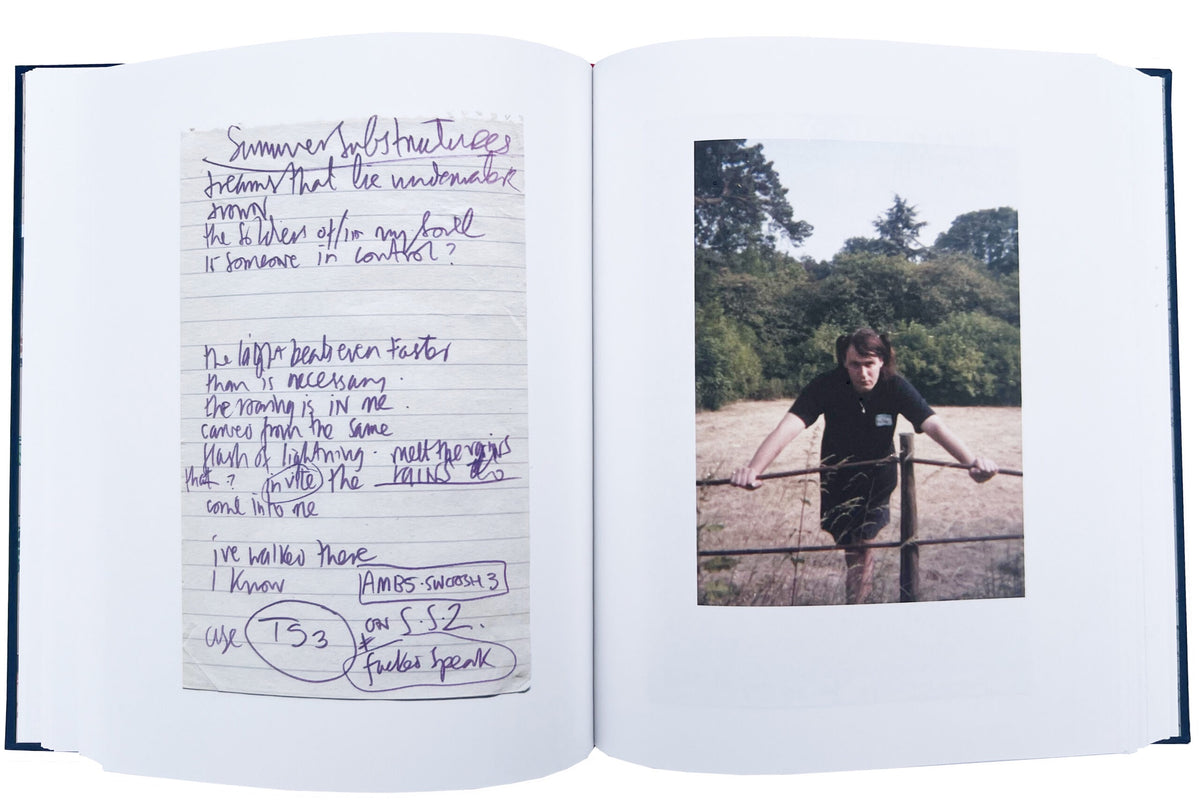 Summer Substructures
dreams that lie underwater
drown
the soldiers of/in my soul
is someone in control?
the light beats even faster
than is necessary.
the roaring is in me.
carved from the same
flash of lightning. melt the
that? invite the rains
come into me
i've walked there
I know
AMBS.SWOOSH 3
use TS3 on S.S.2.
* fucked speak